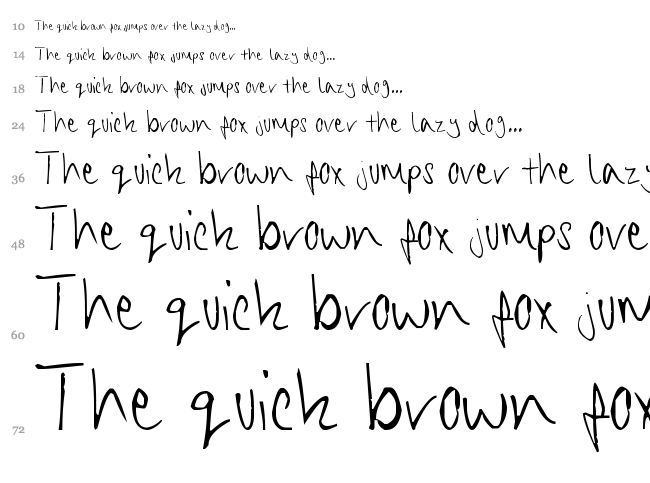 10 The quick brown fox jumps over the lazy dog...
14 The quick brown fox jumps over the lazy dog...
18 The quick brown fox jumps over the lazy dog...
24 The quick brown fox jumps over the lazy dog...
36 The quick brown fox jumps over the lazy
48 The quick brown fox jumps ove
60 The quick brown fox jum
72 The quick brown fox